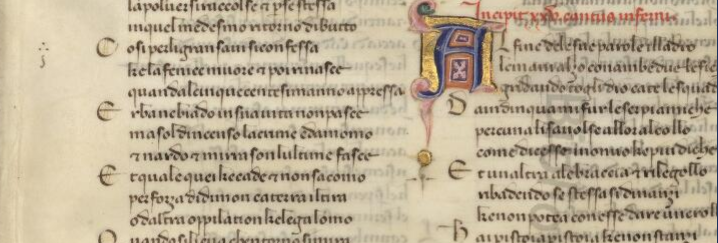 la poluer si raccolse & p se stessa
inquel medesimo ritorno di butto
Cosi perli gran saui si confessa
ke la fenice muore & poi rinasce
quando al cinquecentesimo anno appressa
Erba ne biado in sua uita non pasce
ma sol dincenso lacrime & damomo
& nardo & mirra son lultime fasce
Et quale quei ke cade & non sa como
per forza di dimon ca terra il tira
o daltra oppilation ke lega lomo
Incipit xxv. cantus inferni
Al fine dele sue parole illadro
le mani alzo con ambedue le fic
gridando togli dio ca te le squad
Da indi inqua mi fur le serpi amiche
per cuna li sauolse allora al collo
come dicesse i non uo ke piu diche
Et unaltra ale braccia & rilegollo
ribadendo se stessa si dinanzi
ke non potea con esse dare un crollo
Hai pistoia pistoia ke non stanzi